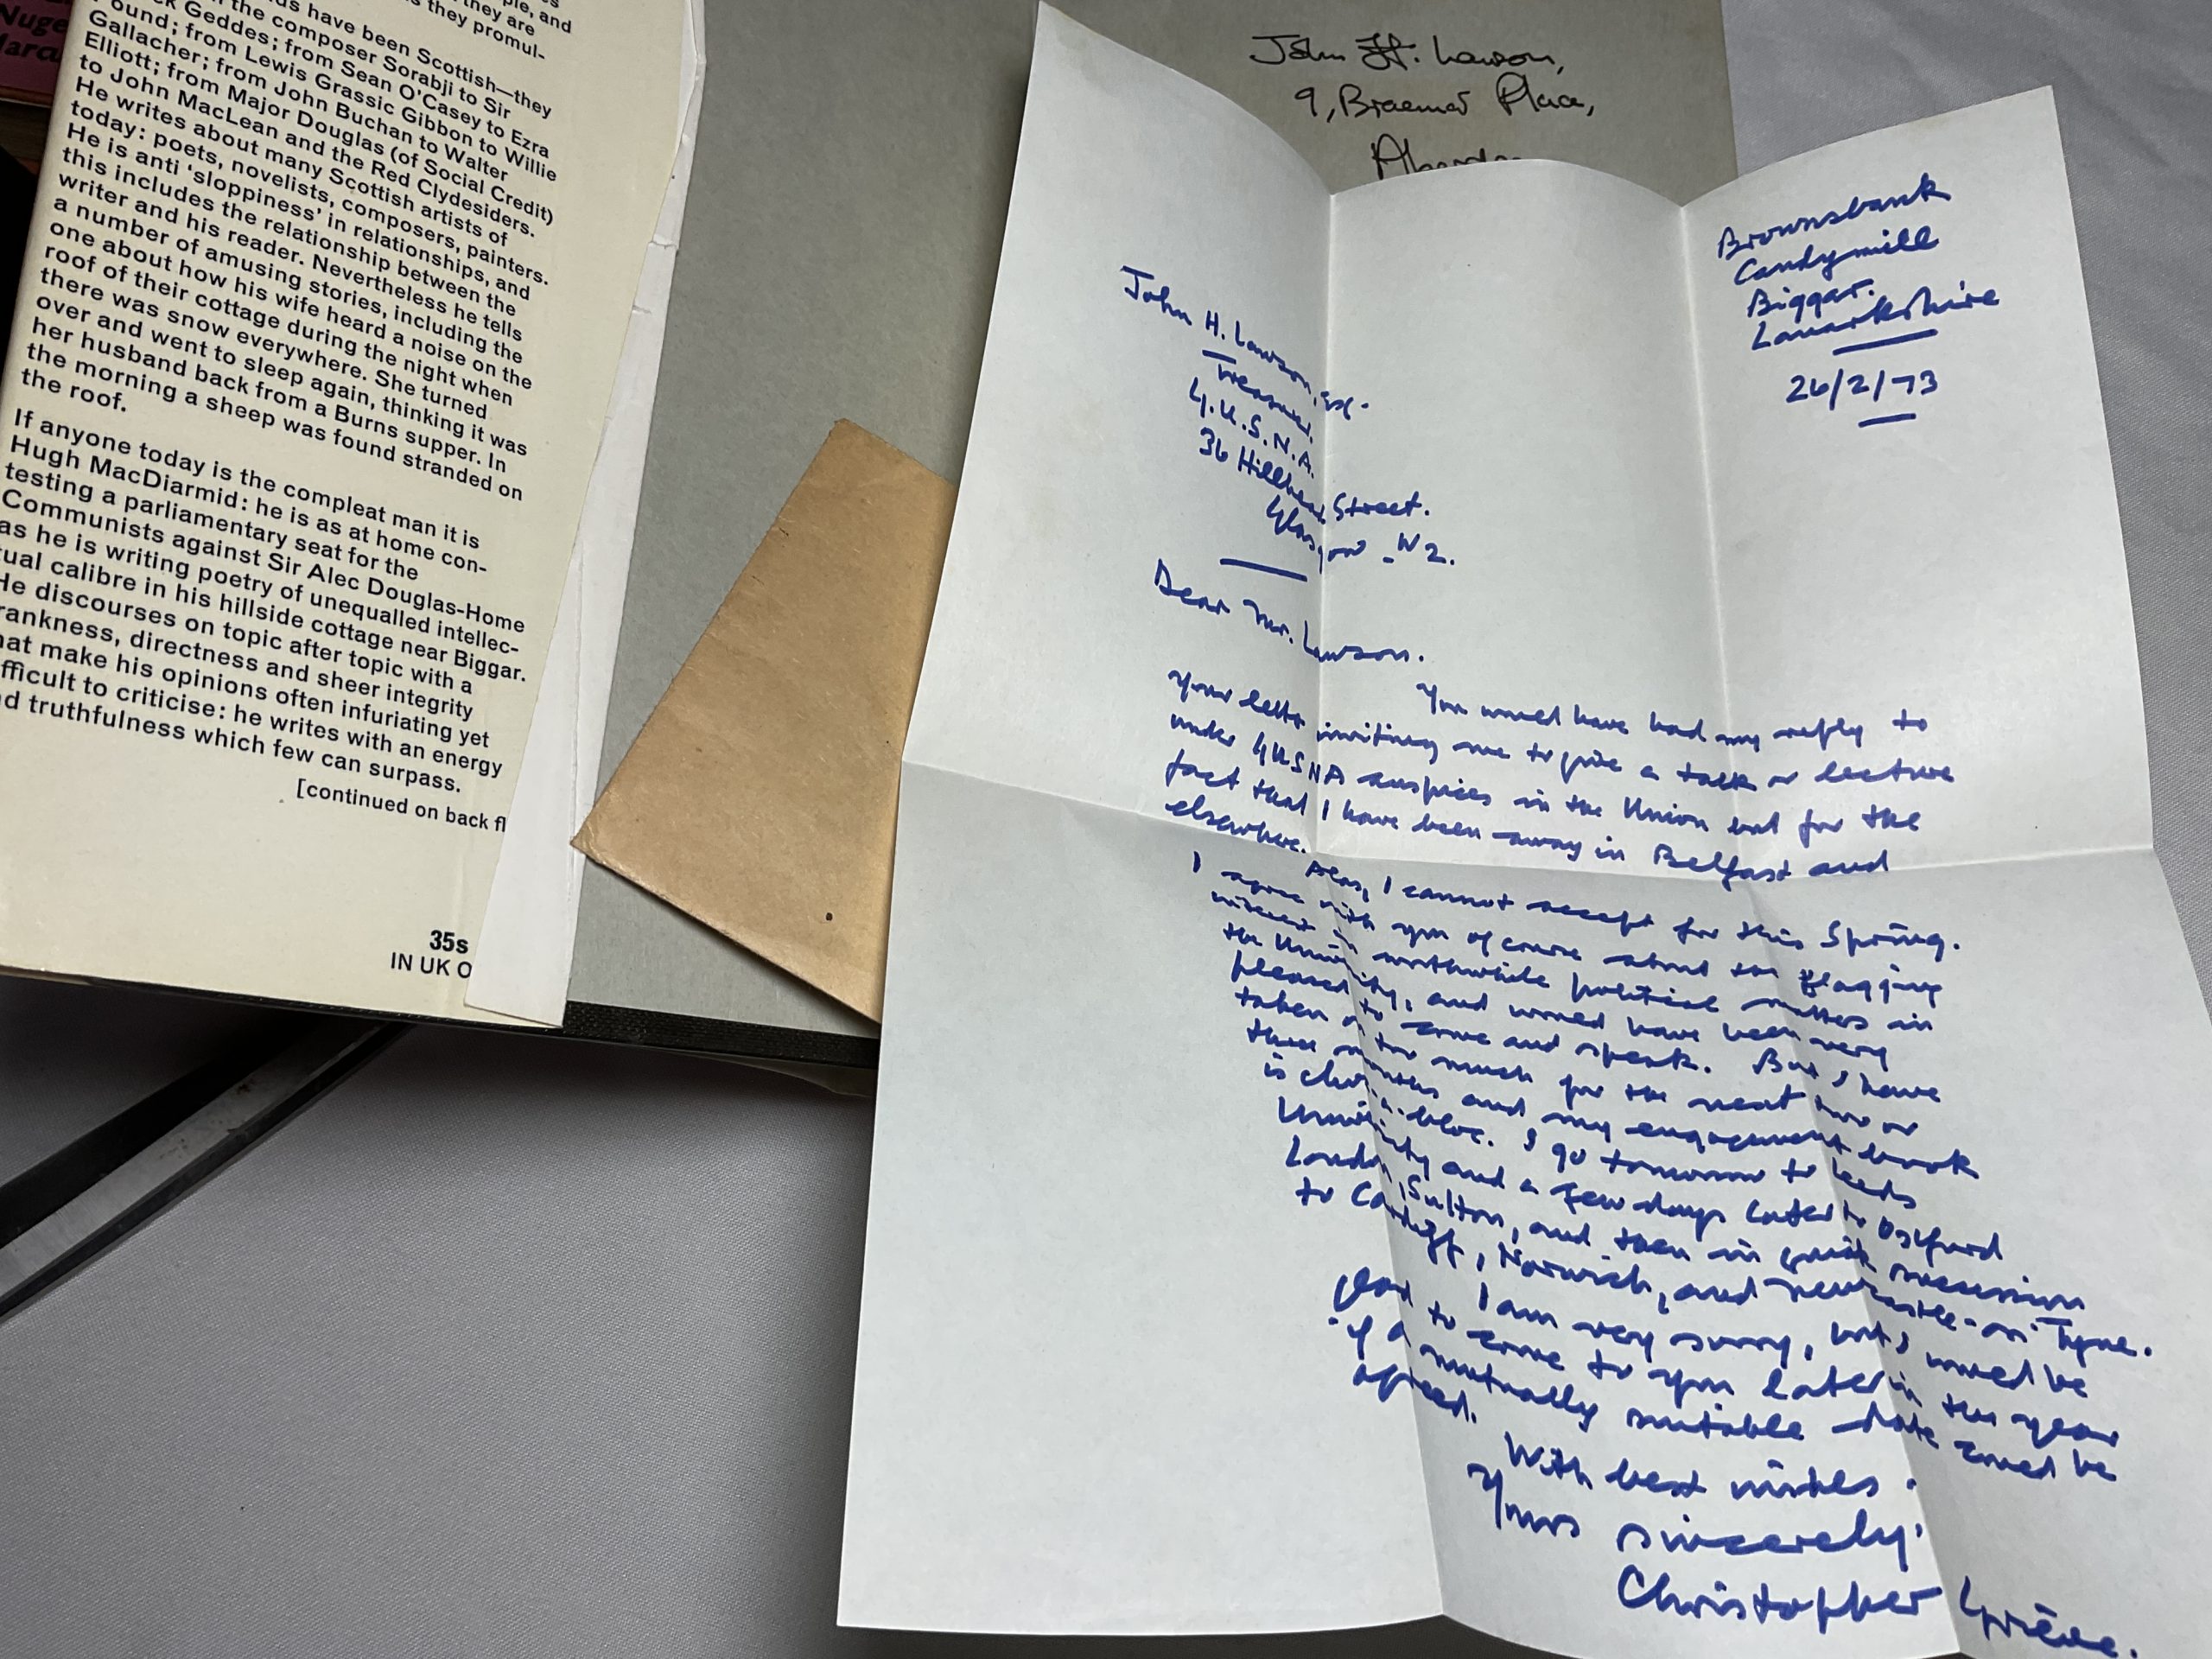 Nuge
Marcu
ple, and
they are
ds have been Scottish—they
s they promul-
the composer Sorabji to Sir
k Geddes; from Sean O'Casey to Ezra
Pound; from Lewis Grassic Gibbon to Willie
Gallacher; from John Buchan to Walter
Elliott; from Major Douglas (of Social Credit)
to John MacLean and the Red Clydesiders.
He writes about many Scottish artists of
today: poets, novelists, composers, painters.
He is anti 'sloppiness' in relationships, and
this includes the relationship between the
writer and his reader. Nevertheless he tells
a number of amusing stories, including the
one about how his wife heard a noise on the
roof of their cottage during the night when
there was snow everywhere. She turned
over and went to sleep again, thinking it was
her husband back from a Burns supper. In
the morning a sheep was found stranded on
the roof.
If anyone today is the compleat man it is
Hugh MacDiarmid: he is as at home con-
testing a parliamentary seat for the
Communists against Sir Alec Douglas-Home
as he is writing poetry of unequalled intellec-
tual calibre in his hillside cottage near Biggar.
He discourses on topic after topic with a
rankness, directness and sheer integrity
hat make his opinions often infuriating yet
fficult to criticise: he writes with an energy
nd truthfulness which few can surpass.
[continued on back fl
35s
IN UK O
John H. Lawson,
9, Braemar Place,
Aberdee
Brownsbank
Candymill
Biggar.
Lanarkshire
26/2/73
John H. Lawson, Esq.
Treasurer.
G.U.S.N.A.
36 Hillhead Street.
Glasgow - W2.
Dear Mr. Lawson.
You would have had my reply to
your letter inviting me to give a talk or lecture
under GUSNA auspices in the Union but for the
fact that I have been away in Belfast and
elsewhere.
Alas, I cannot accept for this Spring.
I agree with you of course about the flagging
interest in worthwhile political matters in
the University, and would have been very
pleased to come and speak. But I have
taken on too much for the next two or
three months and my engagement book
is choc-a-bloc. I go tomorrow to Leeds
University and a few days later to Oxford
London, Sutton, and then in quick succession
to Cardiff, Norwich, and Newcastle-on-Tyne.
I am very sorry, but I would be
glad to come to you later in the year
if a mutually suitable date could be
agreed.
With best wishes.
Yours sincerely,
Christopher Grieve.